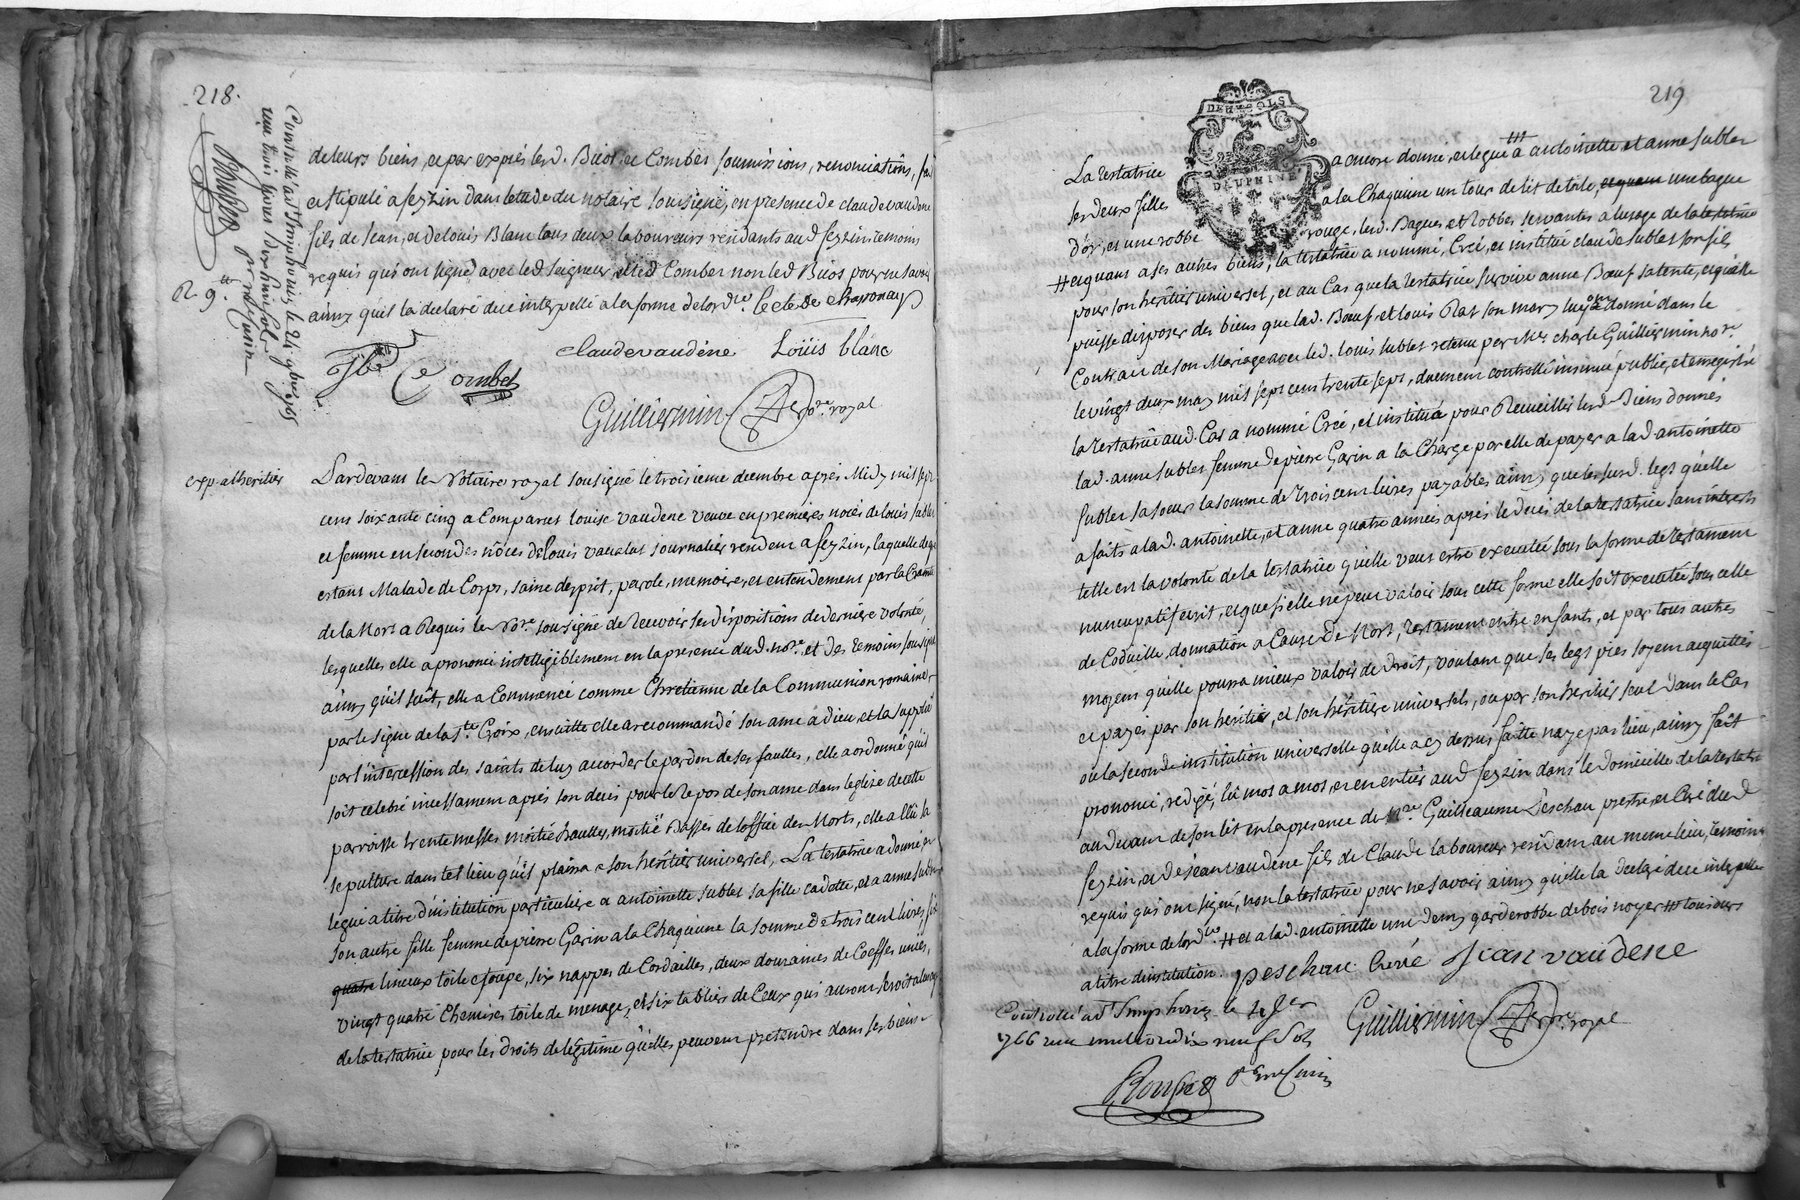 218.
Controllé a St Simphorien le
Rouher p.r m.r Cunin
R. 9.
de leurs biens, et par exprés led. Biot et Combet soumissions, renonciations,
et stipulé a feyzin dans letude du notaire soussigné, en presence de claude vaudene
fils de Jean, et de louis Blanc tous deux laboureurs residants aud feyzin temoins
requis qui ont signé avec led seigneur, et led Combet non led Biot pour ne savoir
ainsy quil la declaré de ce interpellé a la forme de lord.ce
claude vaudene Loüis blanc
Combet
Guilliermin No.re royal
exp. a lheritier
Pardevant le Notaire royal soussigné le troisieme decembre aprés Midy mil sept
cent soixante cinq a Comparut louise vaudene veuve en premieres noces de louis sublet
et femme en secondes nôces de Louis journalier residant a feyzin, laquelle
estant Malade de Corps, saine desprit, parole, memoire, et entendement par la Crainte
de la Mort a Requis le No.re soussigné de recevoir ses dispositions de derniere volonté,
lesquelles elle a prononcé intelligiblement en la presence dud. no.re et des temoins soussignés
ainsy quil suit, elle a Commencé comme Chretienne de la Communion romaine,
par le signe de la S.te Croix, ensuitte elle a recommandé son ame a dieu, et la supplié
par l'intercession des saints de luy accorder le pardon de ses fauttes, elle a ordonné quil
soit celebré incessament aprés son deces pour le repos de son ame dans leglize de cette
parroisse trente messes moitié hauttes, moitié Basses de loffice des Morts, elle a
sepulture dans tel lieu quil plaira a son heritier universel, La testatrice a donné et
legué a titre d'institution particuliere a antoinette sublet sa fille cadette, et a anne sublet
son autre fille femme de pierre Garin a la Chaquune la somme de trois cent livres
quatre linceux toile etoupe, six nappes de Cordailles, deux douzaines de Coeffes unies,
vingt quatre Chemises toile de menage, et six tabliers de Ceux qui auront servit a lusage
de la testatrice pour les droits de legitime quelles peuvent pretendre dans ses biens
219
DEUX SOLS
DAUPHINÉ
La testatrice a encore donné, et legué a antoinette et anne sublet
ses deux filles a la Chaquune un tour de lit de toile, et quant une bague
d'or, et une robbe rouge, lesd. Bagues et Robbes servantes a lusage de la testatrice
et quant a ses autres biens, la testatrice a nommé, Créé, et institué claude sublet son fils
pour son heritier universel, et au Cas que la testatrice survive anne Bœuf sa tente, et quelle
puisse disposer des biens que lad. Bœuf et louis Rat son mary luy ont donné dans le
Contrat de son Mariage avec led. louis sublet retenu par M.e charle Guilliermin no.re
le vingt deux may mil sept cent trente sept, duement controllé insinué publié, et enregistré
la testatrice aud. Cas a nommé Créé, et institué pour Recueillir lesd. Biens donnés
lad. anne sublet femme de pierre Garin a la Charge par elle de payer a lad. antoinette
sublet sa sœur la somme de trois cent livres payables ainsy que les susd. legs quelle
a faits a lad. antoinette, et anne quatre années aprés le deces de la testatrice sans interests
telle est la volonté de la testatrice quelle veut estre executée sous la forme de testament
nuncupatif ecrit, et que si elle ne peut valoir sous cette forme elle soit executée sous celle
de Codicille, donnation a Cause de Mort, testament entre enfants, et par tous autres
moyens quelle pourra mieux valoir de droit, voulant que ses legs pies soyent acquittés
et payés par son heritier, et son heritiere universels, ou par son heritier seul dans le Cas
ou la seconde institution universelle quelle a cy dessus faitte naye pas lieu, ainsy fait
prononcé, redigé, lû mot a mot, et en entier aud feyzin dans le domicille de la testatrice
au devant de son lit en la presence de M.re Guilleaume Peschau prestre et Curé dud
feyzin, et de jean vaudene fils de Claude laboureur residant au meme lieu, temoins
requis qui ont signé, non la testatrice pour ne savoir ainsy quelle la declaré de ce interpellée
a la forme de lord.ce et a lad. antoinette une demy garderobbe de bois noyer tousiours
a titre dinstitution. peschau Curé Jean vaudene
Guilliermin No.re royal
Controllé a St Simphorien le
1766 reçu dix neuf sols
Rouher p.r m.r Cunin